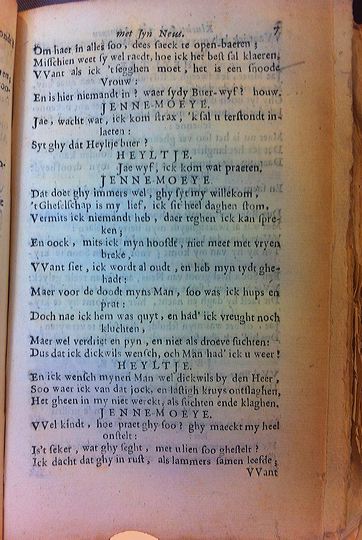 met syn Neus. 5
Om haer in alles soo, dees saeck te open-baeren;
Misschien weet sy wel raedt, hoe ick het best sal klaeren,
VVant als ick 'tsegghen moet, het is een snoode
Vrouw:
En is hier niemandt in? waer sydy Buer-wyf? houw.
JENNE-MOEYE.
Jae, wacht wat, ick kom strax, 'k sal u terstondt in-
laeten:
Syt ghy dat Heyltje buer?
HEYLTJE.
Jae wyf, ick kom wat praeten.
JENNE-MOEYE.
Dat doet ghy immers wel, ghy syt my willekom,
'tGheselschap is my lief, ick sit heel daghen stom,
Vermits ick niemandt heb, daer teghen ick kan spre-
ken;
En oock, mits ick myn hoofde, niet meer met vryen
breke,
VVant siet, ick wordt al oudt, en heb myn tydt ghe-
hadt:
Maer voor de doodt myns Man, soo was ick hups en
prat:
Doch nae ick hem was quyt, en had' ick vreught noch
kluchten,
Maer wel verdriet en pyn, en niet als droeve suchten:
Dus dat ick dickwils wensch, och Man had' ick u weer!
HEYLTJE.
En ick wensch mynen Man wel dickwils by den Heer,
Soo waer ick van dat jock, en lastigh kruys ontslaghen,
Het gheen in my niet werckt, als suchten ende klaghen.
JENNE-MOEYE.
VVel kindt, hoe praet ghy soo? ghy maeckt my heel
onstelt:
Is't seker, wat ghy seght, met ulien soo ghestelt?
Ick dacht dat ghy in rust, als lammers samen leefde;
VVant